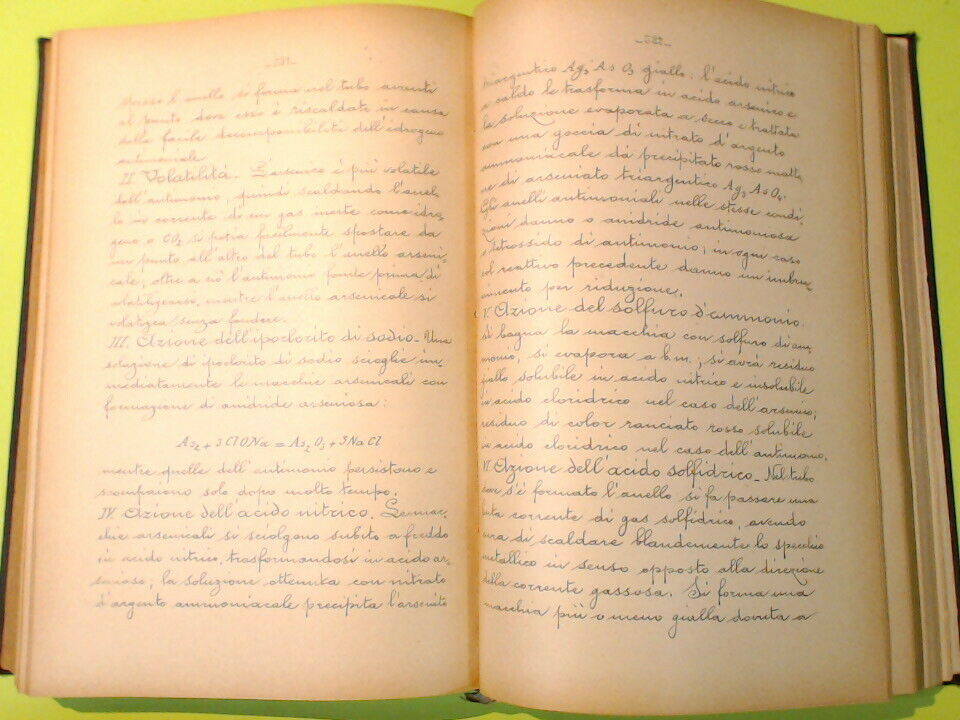 _581_
messo l'anello si forma nel tubo avanti
al punto dove esso è riscaldato in causa
della facile decomponibilità dell'idrogeno
antimoniale
II. Volatilità. L'arsenico è più volatile
dell'antimonio, quindi scaldando l'anel-
lo in corrente di un gas inerte come idro-
geno o CO2 si potrà facilmente spostare da
un punto all'altro del tubo l'anello arseni-
cale; oltre a ciò l'antimonio fonde prima di
volatilizzarsi, mentre l'anello arsenicale si
volatizza senza fondere.
III. Azione dell'ipoclorito di sodio. Una
soluzione di ipoclorito di sodio scioglie im-
mediatamente le macchie arsenicali con
formazione di anidride arseniosa:
As2 + 3 Cl O Na = As2 O3 + 3 Na Cl
mentre quelle dell'antimonio persistono e
scompaiono solo dopo molto tempo.
IV. Azione dell'acido nitrico. Le mac-
chie arsenicali si sciolgono subito a freddo
in acido nitrico, trasformandosi in acido ar-
senioso; la soluzione ottenuta con nitrato
d'argento ammoniacale precipita l'arsenito
_582_
triargentico Ag3 As O3 giallo: l'acido nitrico
a caldo le trasforma in acido arsenico e
la soluzione evaporata a secco e trattata
con una goccia di nitrato d'argento
ammoniacale dà precipitato rosso matto-
ne di arseniato triargentico Ag3 As O4.
Gli anelli antimoniali nelle stesse condi-
zioni danno o anidride antimoniosa
o tetrossido di antimonio; in ogni caso
col reattivo precedente danno un imbru-
nimento per riduzione.
V. Azione del solfuro d'ammonio.
Si bagna la macchia con solfuro di am-
monio, si evapora a b.m.; si avrà residuo
giallo solubile in acido nitrico e insolubile
in acido cloridrico nel caso dell'arsenico;
residuo di color ranciato rosso solubile
in acido cloridrico nel caso dell'antimonio.
VI. Azione dell'acido solfidrico. Nel tubo
ove s'è formato l'anello si fa passare una
lenta corrente di gas solfidrico, avendo
cura di scaldare blandemente lo specchio
metallico in senso opposto alla direzione
della corrente gassosa. Si forma una
macchia più o meno gialla dovuta a